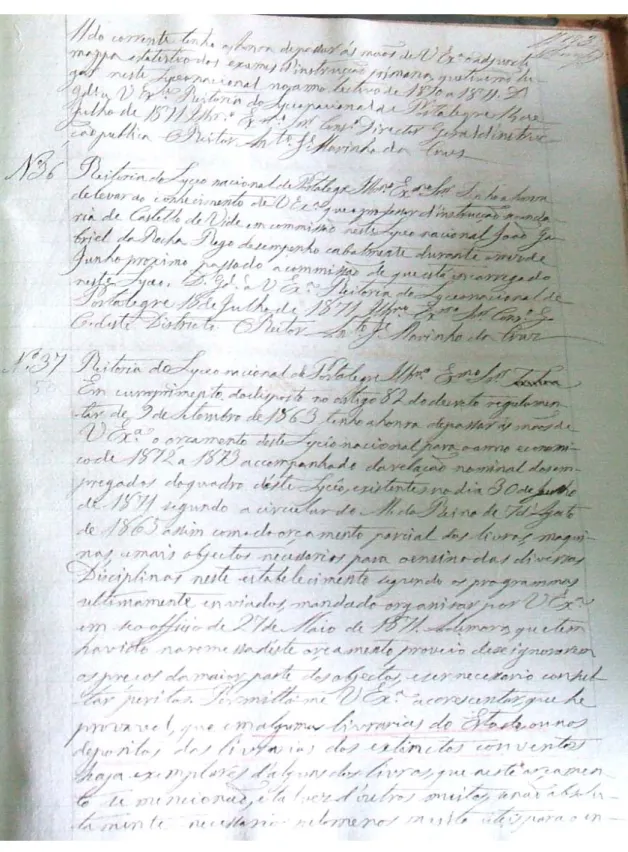 11 do corrente tenho a honra de passar ás mãos de V Exª o adjunto
mappa estatistico dos exames d'instrucção primaria, que tiveram lu-
gar neste Lyceo nacional no anno lectivo de 1870 a 1871. D.
Gde a V Exª Reitoria do Lyceo nacional de Portalegre 12 de
Julho de 1871 Illmº e Exmº Snr Consº Director Geral d'instruc-
ção publica O Reitor Antº Jé Marinho da Cruz
Nº 36 Reitoria do Lyceo nacional de Portalegre Illmº Exmº Snr Tenho a honra
de levar ao conhecimento de V Exª que o professor d'instrucção secunda-
ria de Castello de Vide em commissão neste Lyceo nacional João Ga-
briel da Rocha Rego desempenhou cabalmente durante o mez de
Junho proximo passado a commissão de que está encarregado
neste Lyceo. D. Gde a V Exª Reitoria do Lyceo nacional de
Portalegre de Julho de 1871 Illmº Exmº Snr Consº G.
C. deste Districto O Reitor Antº Jé Marinho da Cruz
Nº 37 Reitoria do Lyceo nacional de Portalegre Illmº Exmº Snr
Em cumprimento do disposto no artigo 82 do decreto regulamen-
tar de 9 de Setembro de 1863 tenho a honra de passar ás mãos de
V Exª o orçamento deste Lycio nacional para o anno economi-
co de 1872 a 1873 acompanhado da relação nominal dos em-
pregados do quadro deste Lycêo, existentes no dia 30 de Junho
de 1871 segundo a circular do M. do Reino de 7 d'Agosto
de 1865 assim como do orçamento parcial dos livros, machi-
nas e mais objectos necessarios para o ensino das diversas
Disciplinas neste estabelecimento segundo os programmas
ultimamente enviados, mandado organisar por V Exª
em seo officio de 27 de Maio de 1871. A demora, que tem
havido na remessa deste orçamento proveio de se ignorarem
os preços da maior parte dos objectos, e ser necessario consul-
tar peritos. Permitta-me V Exª acrescentar, que he
provavel, que em algumas livrarias do Estado ou nos
depositos das livrarias dos extinctos conventos
haja exemplares d'alguns dos livros, que neste orçamen-
to se mencionão, e talvez d'outros muitos, senão absolu-
tamente necessarios ao menos muito uteis para o en-